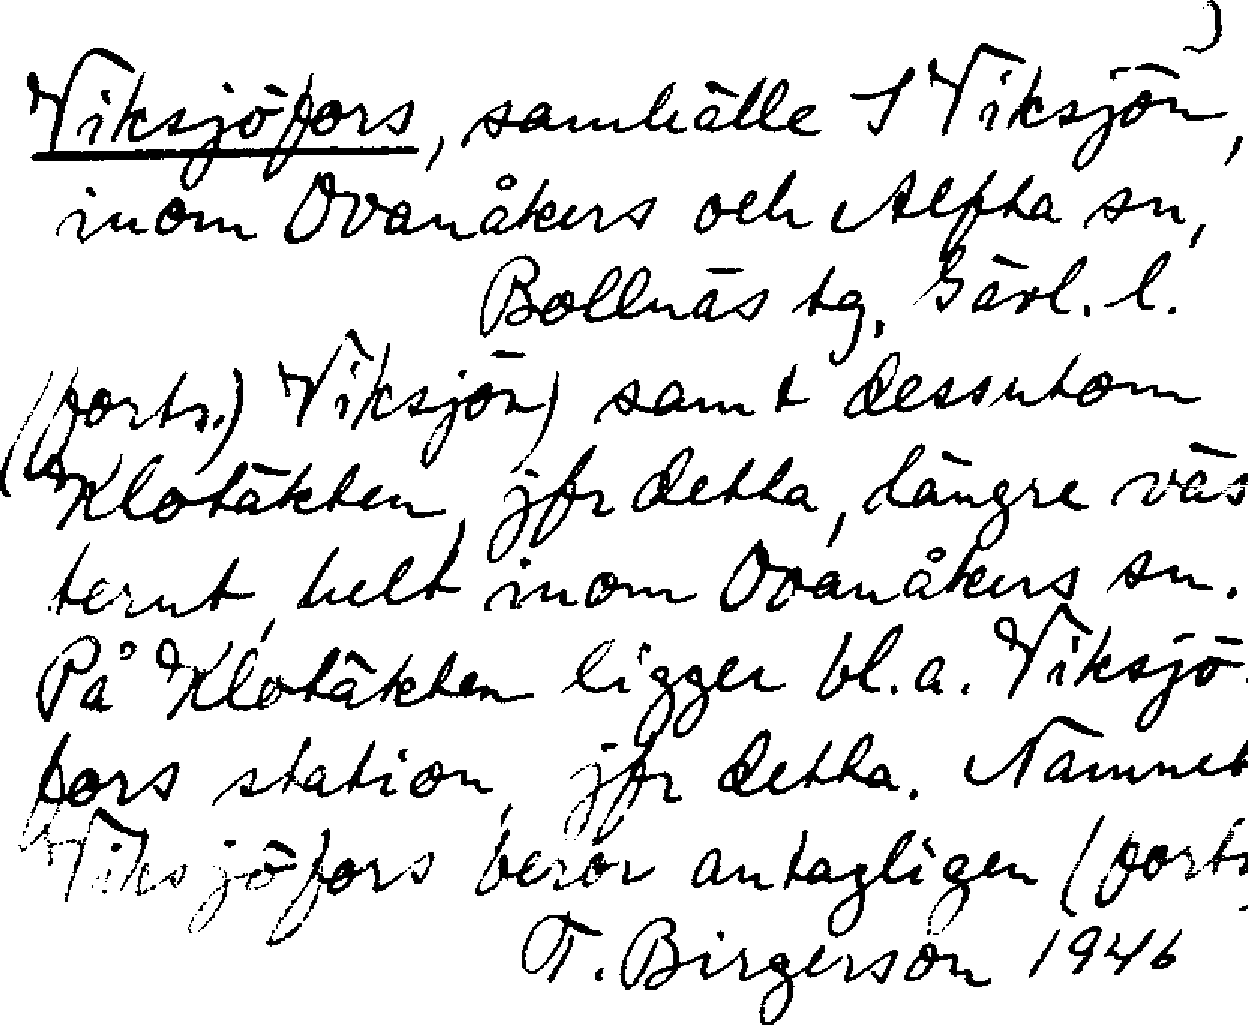 Viksjöfors, samhälle S Viksjön,
inom Ovanåkers och Alfta sn,
Bollnäs tg, Gävl. l.
(forts.) Viksjön) samt dessutom
Klotäkten, jfr detta, längre väs
ternt, helt inom Ovanåkers sn.
På Klotäkten ligger bl.a. Viksjö-
fors station, jfr detta. Namnet
Viksjöfors beror antagligen (forts
T. Birgerson 1946